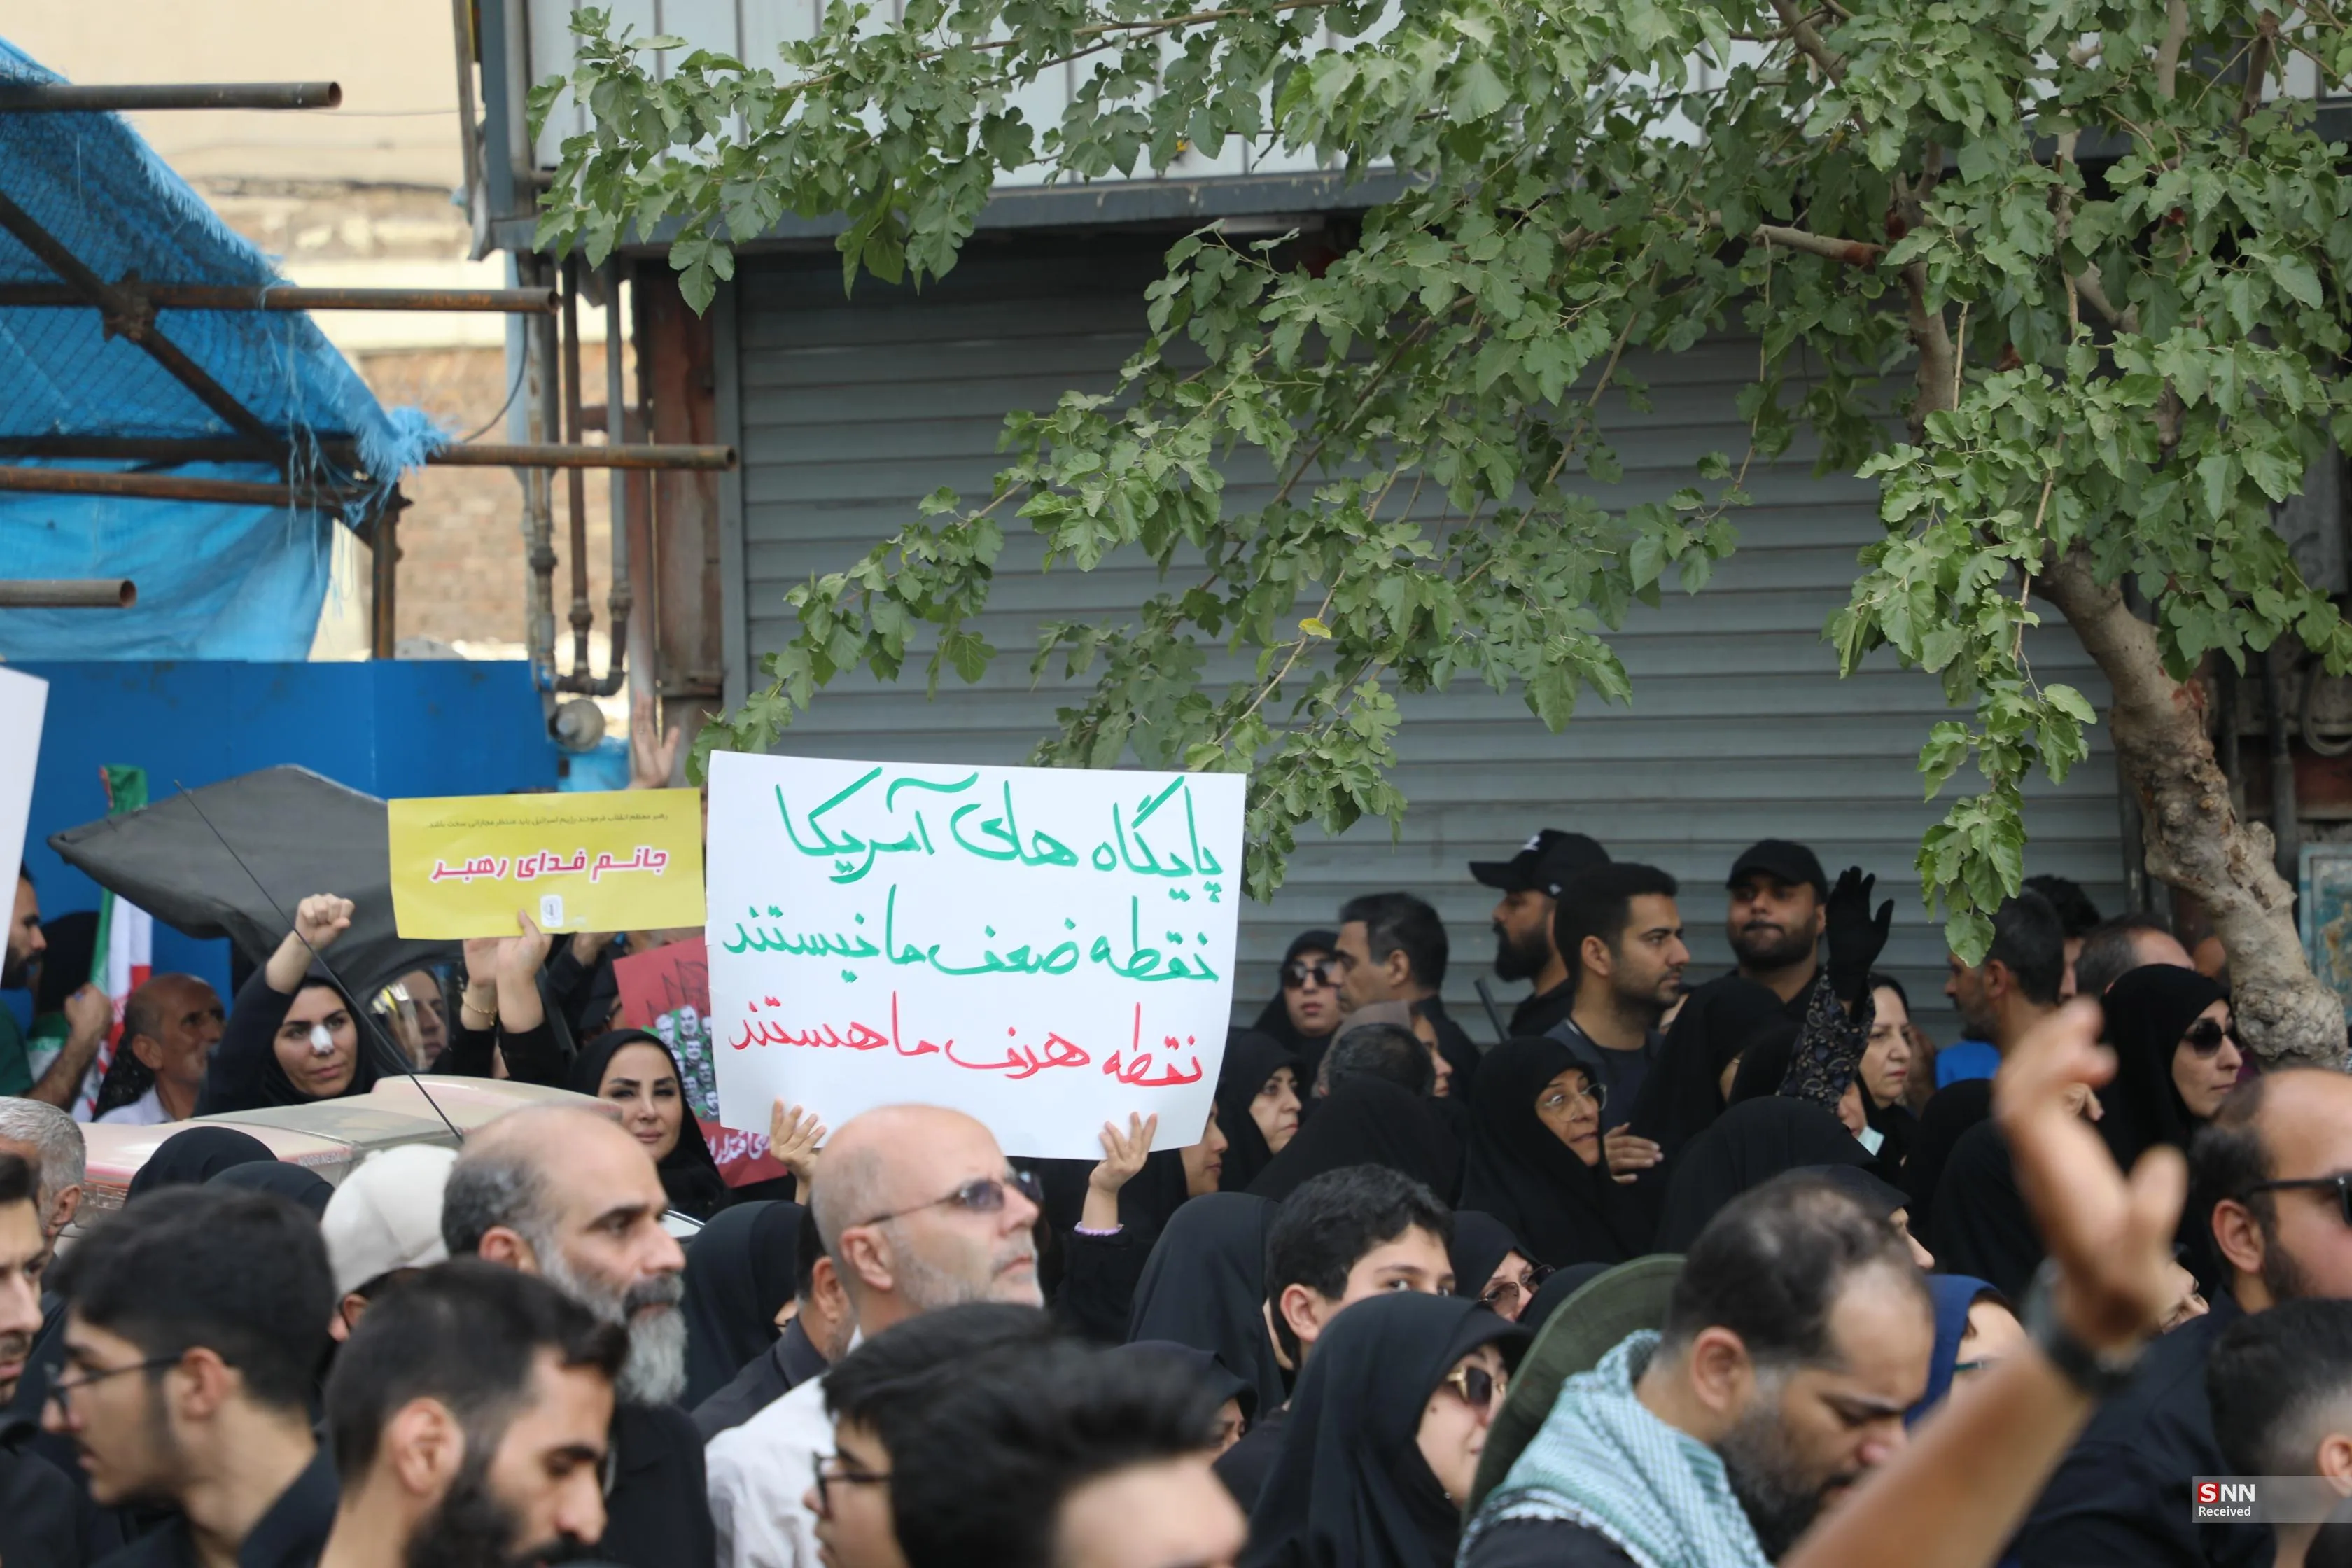 پایگاه های آمریکا
نقطه ضعف ما نیستند
نقطه هدف ما هستند
رهبر معظم انقلاب فرمودند رژیم اسرائیل باید منتظر مجازاتی سخت باشد
جانم فدای رهبر
SNN
Received